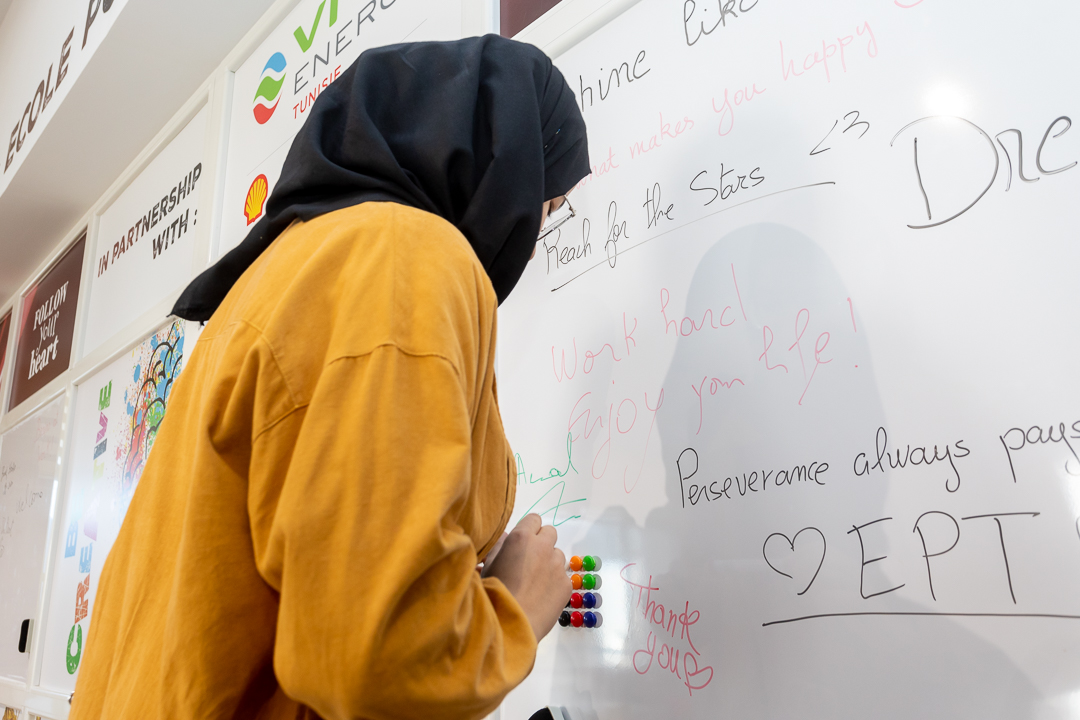 ECOLE PO
VI
ENERG
TUNISIE
IN PARTNERSHIP
WITH :
FOLLOW
your
heart
hine like
hat makes you happy
Reach for the Stars <3
Dre
Work hard
Enjoy your life!
Amal
Perseverance always pays
♡ EPT
Thank
you